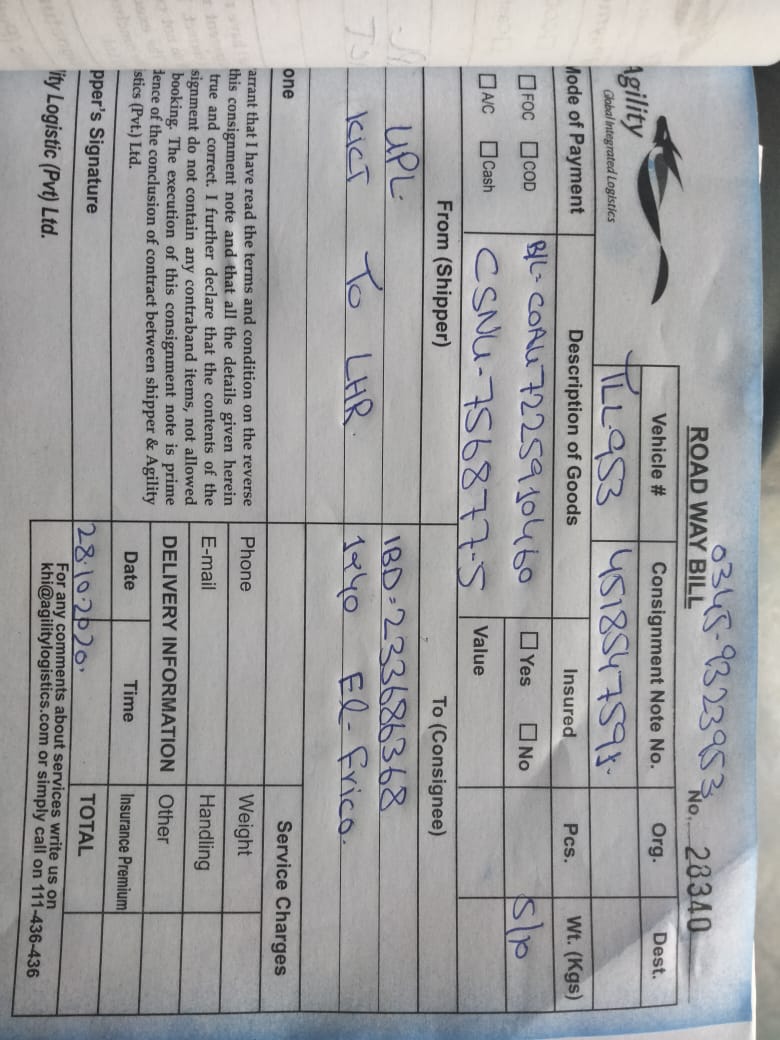 0345-9323953
ROAD WAY BILL No. 28340
Agility
Global Integrated Logistics
Vehicle # Consignment Note No. Org. Dest.
TLL-953 4518547591.
Mode of Payment Description of Goods Insured Pcs. Wt. (Kgs)
FOC COD B/L- COAU 7225910460 Yes No
A/C Cash CSNU-756877-5 Value
From (Shipper) To (Consignee)
UPL. IBD=233686368
KICT To LHR. El-Frico.
one Service Charges
arrant that I have read the terms and condition on the reverse
this consignment note and that all the details given herein
true and correct. I further declare that the contents of the
signment do not contain any contraband items, not allowed
booking. The execution of this consignment note is prime
dence of the conclusion of contract between shipper & Agility
stics (Pvt.) Ltd.
Phone Weight
E-mail Handling
DELIVERY INFORMATION Other
Date Time Insurance Premium
pper's Signature 28.10.2020. TOTAL
ity Logistic (Pvt) Ltd.
For any comments about services write us on
khi@agilitylogistics.com or simply call on 111-436-436